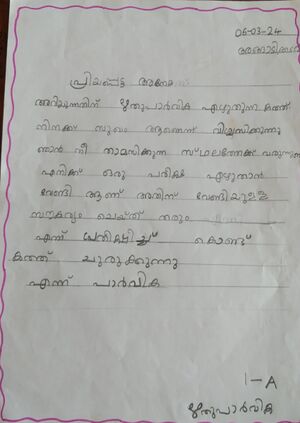 06-03-24
അങ്ങാടിക്കൽ
പ്രിയപ്പെട്ട
അറിയുന്നതിന് ഋതുപാർവിക എഴുതുന്ന കത്ത്
നിനക്ക് സുഖം ആണെന്ന് വിശ്വസിക്കുന്നു
ഞാൻ നീ താമസിക്കുന്ന സ്ഥലത്തേക്ക് വരുന്നുണ്ട്
എനിക്ക് ഒരു പരീക്ഷ എഴുതാൻ
വേണ്ടി ആണ് അതിന് വേണ്ടിയുള്ള
സൗകര്യം ചെയ്ത് തരും
എന്ന് പ്രതീക്ഷിച്ച് കൊണ്ട്
കത്ത് ചുരുക്കുന്നു
എന്ന് പാർവിക
1-A
ഋതുപാർവിക